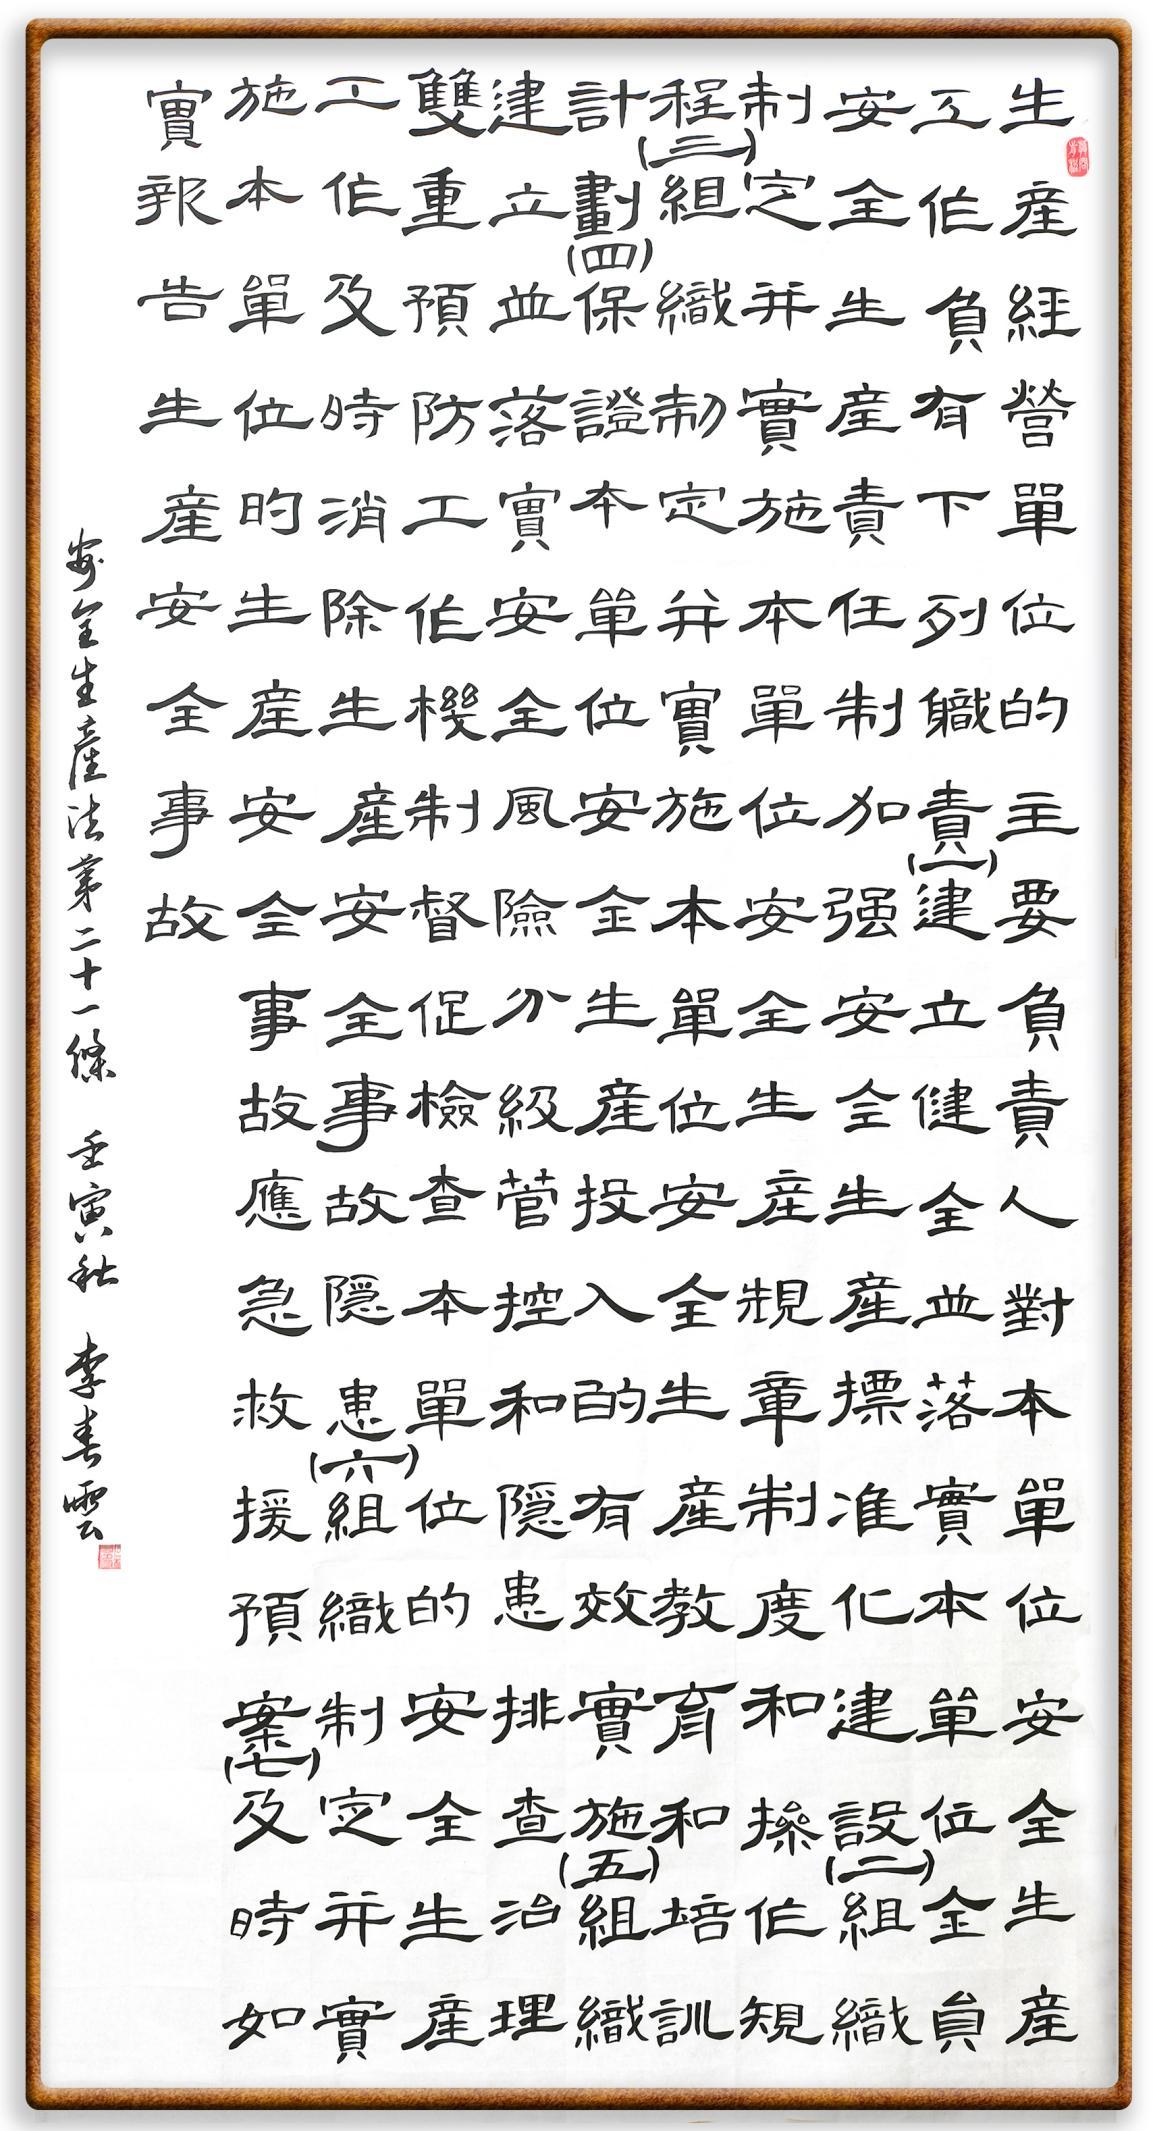 生産經營單位的主要負責人對本單位安全生産
工作負有下列職責(一)建立健全並落實本單位全員
安全生産責任制加强安全生産摽准化建設(二)組織
制定并實施本單位安全生産規章制度和操作規
程(三)組織制定并實施本單位安全生産教育和培訓
計劃(四)保證本單位安全生産投入的有效實施(五)組織
建立並落實安全風險分級菅控和隐患排查治理
雙重預防工作機制督促檢查本單位的安全生産
工作及時消除生産安全事故隐患(六)組織制定并實
施本單位的生産安全事故應急救援預案(七)及時如
實報告生産安全事故
安全生産法第二十一條 壬寅秋 李春雲